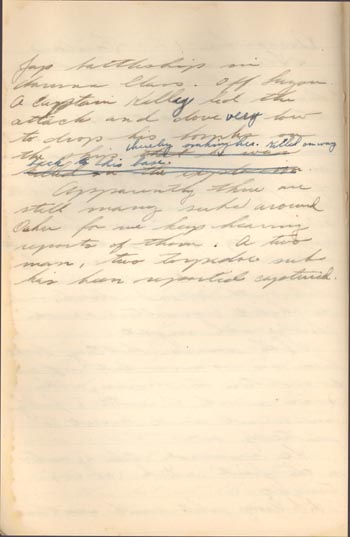 Jap battleship in
Haruna Class. Off Luzon
A Captain Kelley led the
attack and dove very low
to drops his bombs on
the ship thereby making her. Killed on way
back to this base.
killed in the explosion.
Apparently there are
still many subs around
Oahu for we keep hearing
reports of them. A two
man, two torpedoe sub
has been reported captured.